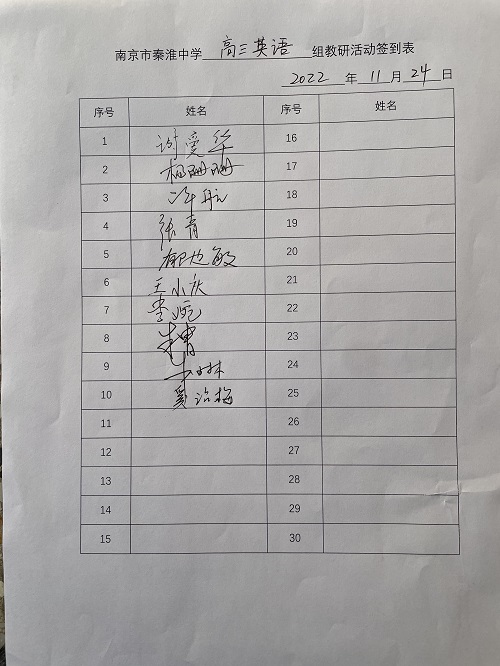 南京市秦淮中学 高三英语 组教研活动签到表
2022 年 11 月 24 日
序号 姓名 序号 姓名
1 谢爱华 16
2 杨珊珊 17
3 许航 18
4 张青 19
5 郁也敏 20
6 王小庆 21
7 李婉 22
8 23
9 24
10 窦治梅 25
11 26
12 27
13 28
14 29
15 30